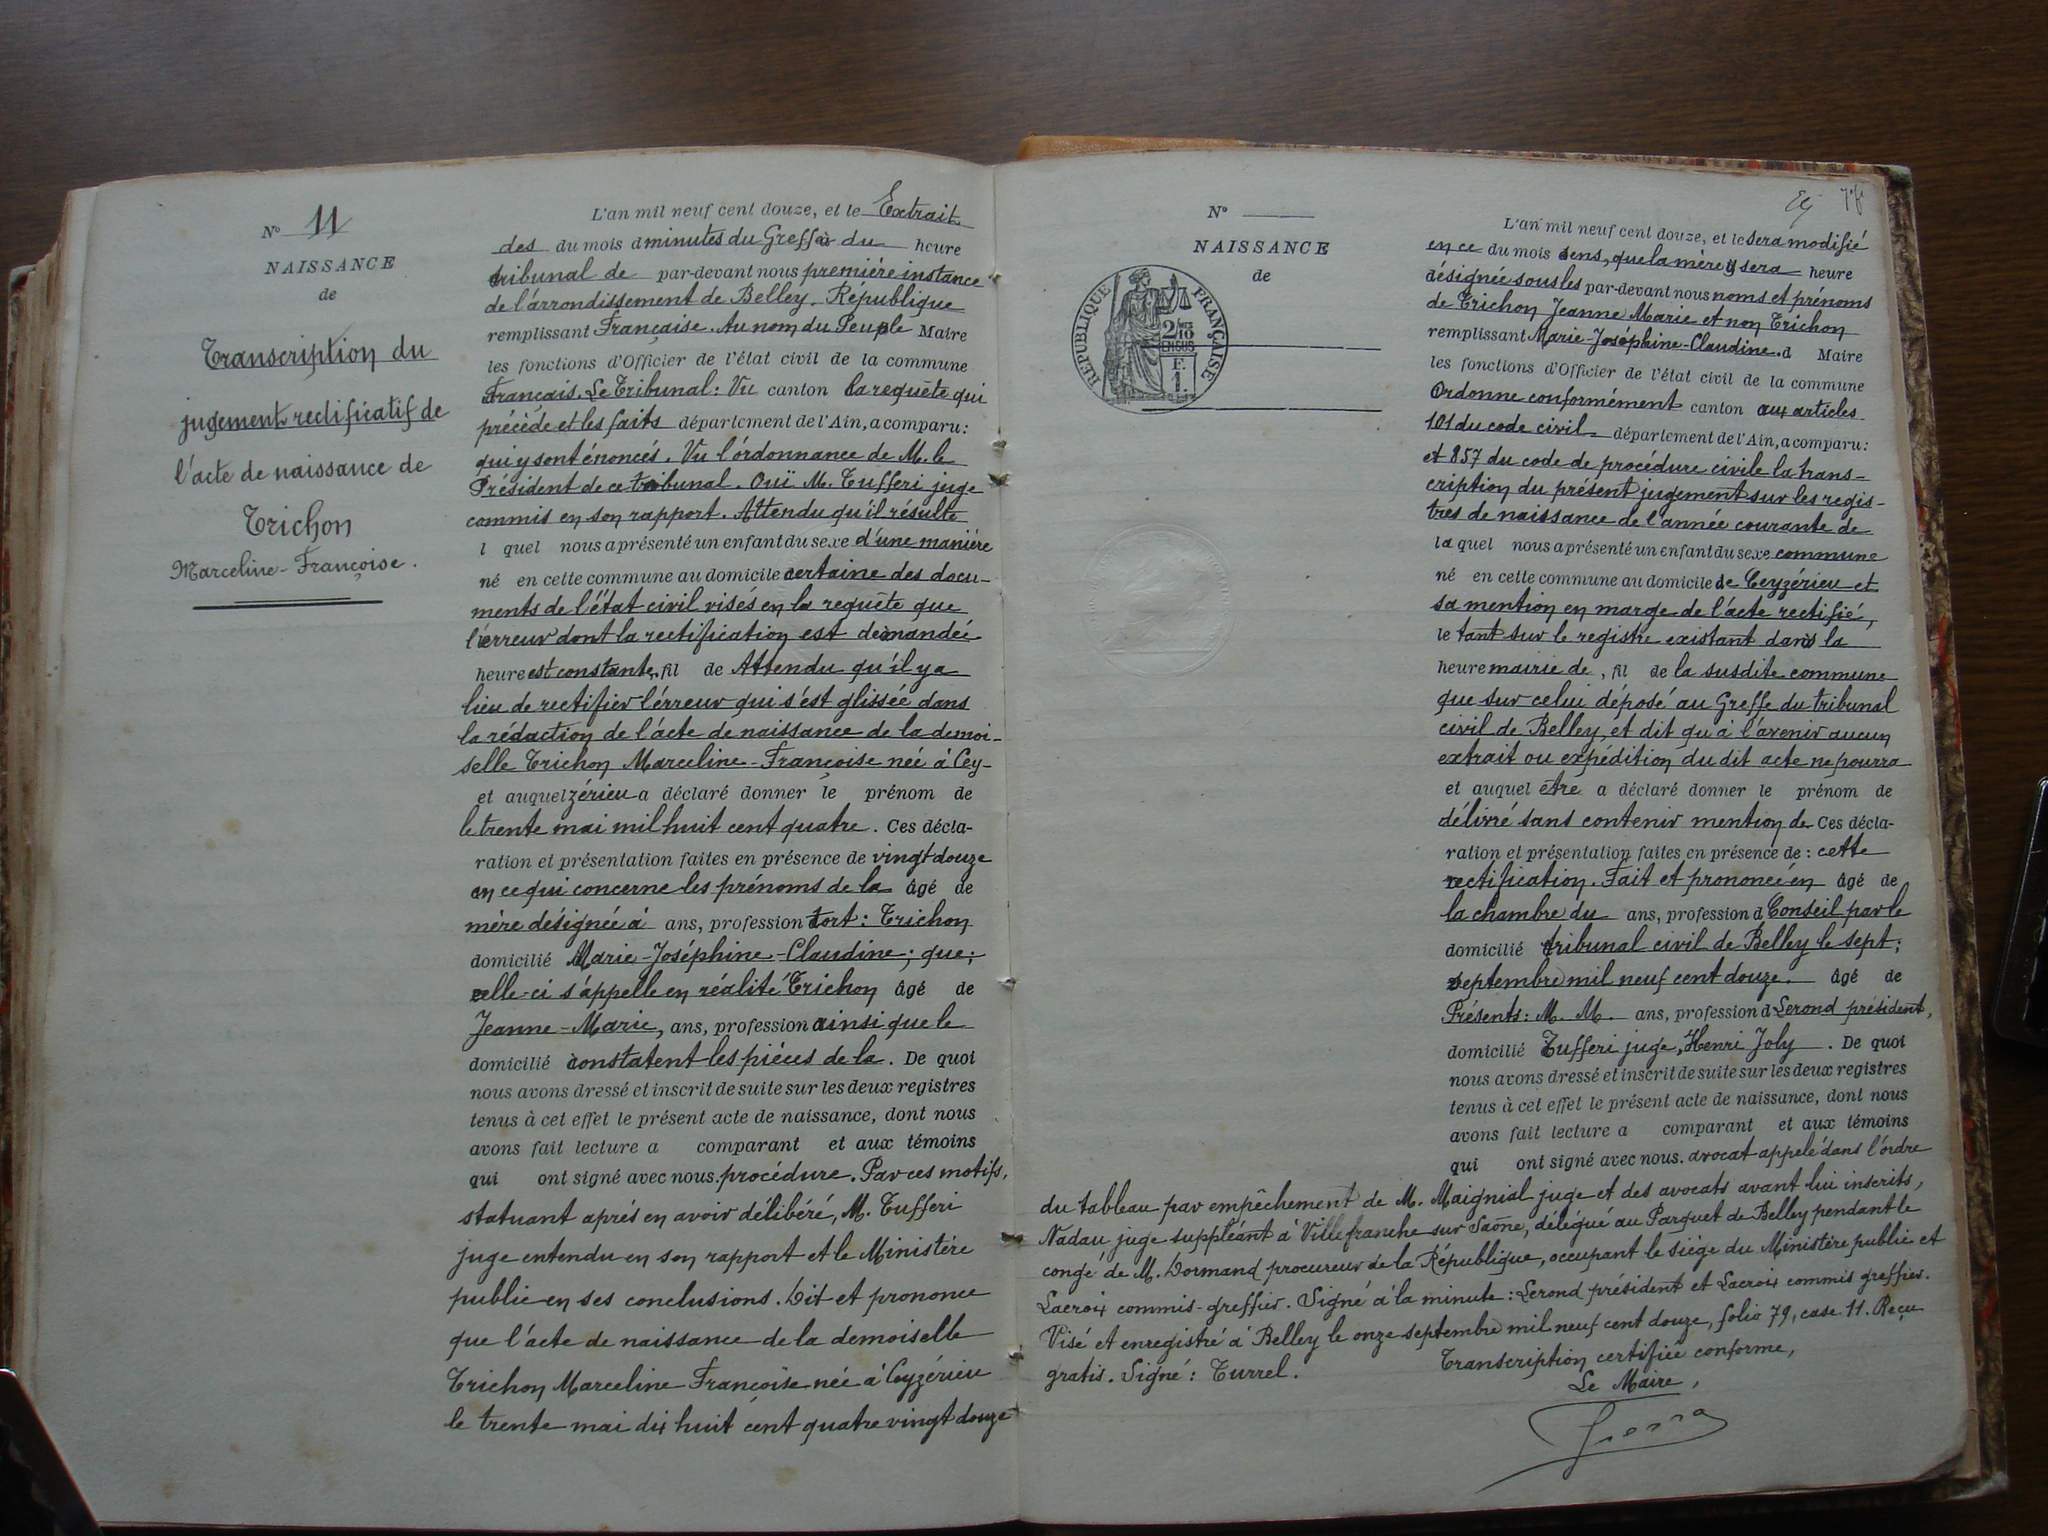 N° 11
NAISSANCE
de
Transcription du
jugement rectificatif de
l'acte de naissance de
Trichon
Marceline-Françoise.
L'an mil neuf cent douze, et le Extrait
des du mois d minutes du Greffe à du heure
tribunal de par-devant nous première instance
de l'arrondissement de Belley. République
remplissant Française. Au nom du Peuple Maire
les fonctions d'Officier de l'état civil de la commune
Français. Le Tribunal: Vu canton la requête qui
précède et les faits département de l'Ain, a comparu:
qui y sont énoncés. Vu l'ordonnance de M. le
Président de ce tribunal. Ouï M. Tufferi juge
commis en son rapport. Attendu qu'il résulte
l quel nous a présenté un enfant du sexe d'une manière
né en cette commune au domicile certaine des docu-
ments de l'état civil visés en la requête que
l'érreur dont la rectification est demandée
heure est constante, fil de Attendu qu'il y a
lieu de rectifier l'érreur qui s'est glissée dans
la rédaction de l'acte de naissance de la demoi-
selle Trichon Marceline-Françoise née à Cey-
et auquel zérieu a déclaré donner le prénom de
le trente mai mil huit cent quatre. Ces décla-
ration et présentation faites en présence de vingt douze
en ce qui concerne les prénoms de la âgé de
mère désignée à ans, profession tort: Trichon
domicilié Marie-Joséphine-Claudine; que;
celle-ci s'appelle en réalité Trichon âgé de
Jeanne-Marie, ans, profession ainsi que le
domicilié constatent les pièces de la. De quoi
nous avons dressé et inscrit de suite sur les deux registres
tenus à cet effet le présent acte de naissance, dont nous
avons fait lecture a comparant et aux témoins
qui ont signé avec nous. procédure. Par ces motifs,
statuant après en avoir délibéré, M. Tufferi
juge entendu en son rapport et le Ministère
public en ses conclusions. Dit et prononce
que l'acte de naissance de la demoiselle
Trichon Marceline Françoise née à Ceyzérieu
le trente mai dix huit cent quatre vingt douze
N°
NAISSANCE
de
RÉPUBLIQUE FRANÇAISE
2/10
EN SUS
F.
1.
L'an mil neuf cent douze, et le sera modifié
en ce du mois sens, que la mère y sera heure
désignée sous les par-devant nous noms et prénoms
de Trichon Jeanne Marie et non Trichon
remplissant Marie-Joséphine-Claudine. d Maire
les fonctions d'Officier de l'état civil de la commune
Ordonne conformément canton aux articles
101 du code civil département de l'Ain, a comparu:
et 857 du code de procédure civile la trans-
cription du présent jugement sur les regis-
tres de naissance de l'année courante de
la quel nous a présenté un enfant du sexe commune
né en cette commune au domicile de Ceyzérieu et
sa mention en marge de l'acte rectifié,
le tant sur le registre existant dans la
heure mairie de, fil de la susdite commune
que sur celui déposé au Greffe du tribunal
civil de Belley, et dit qu'à l'avenir aucun
extrait ou expédition du dit acte ne pourra
et auquel être a déclaré donner le prénom de
délivré sans contenir mention de Ces décla-
ration et présentation faites en présence de: cette
rectification. Fait et prononcé en âgé de
la chambre du ans, profession d Conseil par le
domicilié tribunal civil de Belley le sept;
septembre mil neuf cent douze. âgé de
Présents: M. M. ans, profession d Lerond président,
domicilié Tufferi juge, Henri Joly. De quoi
nous avons dressé et inscrit de suite sur les deux registres
tenus à cet effet le présent acte de naissance, dont nous
avons fait lecture a comparant et aux témoins
qui ont signé avec nous. avocat appelé dans l'ordre
du tableau par empêchement de M. Maignial juge et des avocats avant lui inscrits,
Nadau juge suppléant à Villefranche sur Saône, délégué au Parquet de Belley pendant le
congé de M. Dormand procureur de la République, occupant le siège du Ministère public et
Lacroix commis-greffier. Signé à la minute: Lerond président et Lacroix commis greffier.
Visé et enregistré à Belley le onze septembre mil neuf cent douze, folio 79, case 11. Reçu
gratis. Signé: Turrel.
Transcription certifiée conforme,
Le Maire,